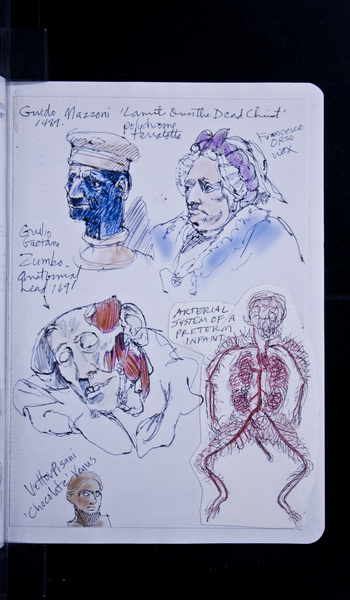 Guido Mazzoni 'Lament Over the Dead Christ'
1489.
polychrome
terracotta
Francesco
Orso
wax
Giulio
Gaetano
Zumbo.
Anatomical
head 169
ARTERIAL
SYSTEM OF A
PRETERM
INFANT
Victor Pisani
'Chocolate Venus